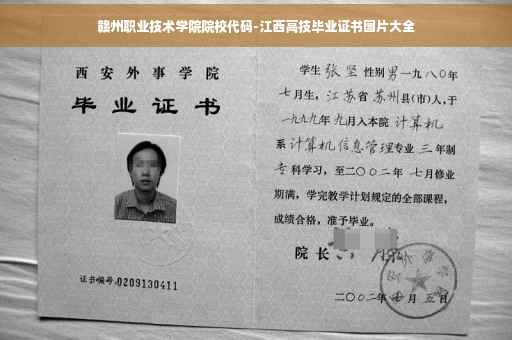 赣州职业技术学院院校代码-江西高技毕业证书图片大全
西安外事学院
毕业证书
证书编号:0209130411
学生 张坚 性别 男 一九八〇年
七月生，江苏省 苏州县(市)人，于
一九九九年 九月入本院 计算机
系 计算机信息管理专业 三 年制
专 科学习，至二〇〇二年 七月修业
期满，学完教学计划规定的全部课程，
成绩合格，准予毕业。
院长
二〇〇二年 七 月 五 日